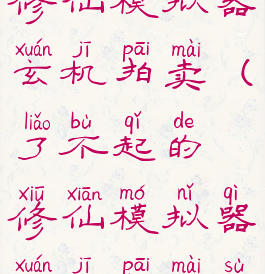 修仙模拟器
xuán jī pāi mài
玄机拍卖（
liǎo bù qǐ de
了不起的
xiū xiān mó nǐ qì
修仙模拟器
xuán jī pāi mài sù